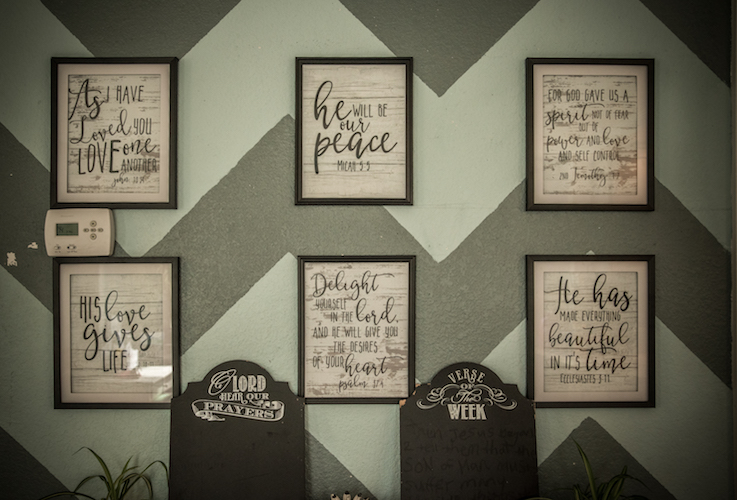 As I HAVE
Loved YOU
LOVE one
ANOTHER
he
WILL BE
our
peace
MICAH 5:5
FOR GOD GAVE US A
spirit NOT OF FEAR
BUT OF
power AND love
AND SELF CONTROL
2ND Timothy
HIS love
gives
LIFE
Delight
YOURSELF
IN THE lord,
AND HE WILL GIVE YOU
THE DESIRES
OF YOUR heart
psalm 37:4
He has
MADE EVERYTHING
beautiful
IN IT'S time
ECCLESIASTES 3:11
O LORD
HEAR OUR
PRAYERS
VERSE
OF
The
WEEK